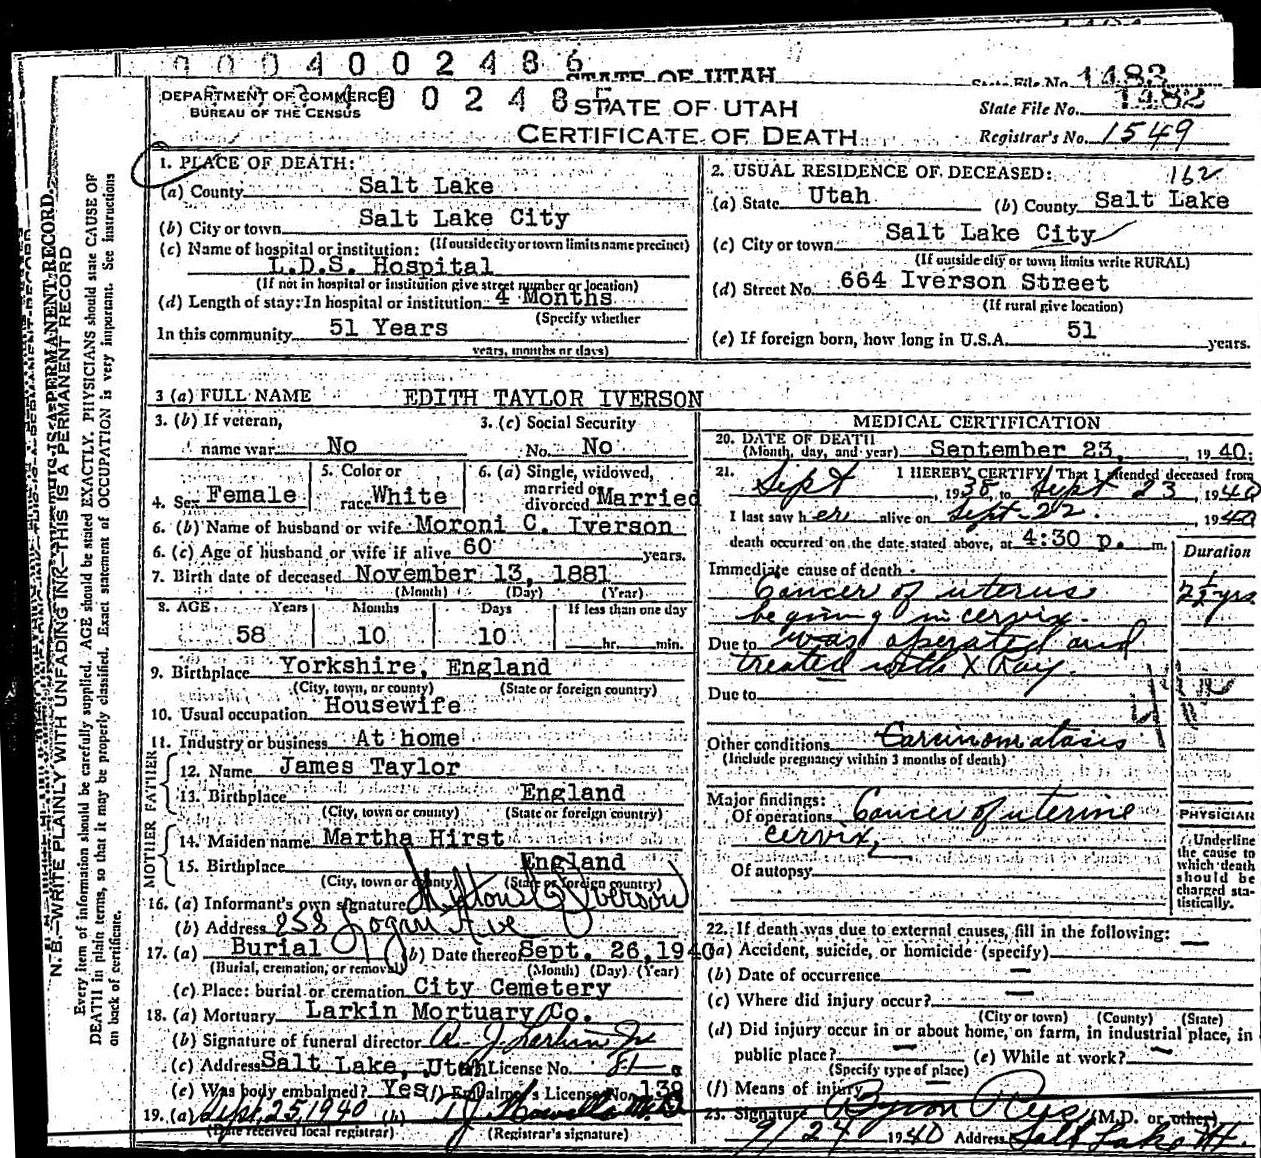 0004002486
STATE OF UTAH
State File No. 1483
DEPARTMENT OF COMMERCE
BUREAU OF THE CENSUS
STATE OF UTAH
CERTIFICATE OF DEATH
State File No. 1482
Registrar's No. 1549
1. PLACE OF DEATH:
(a) County Salt Lake
(b) City or town Salt Lake City
(If outside city or town limits name precinct)
(c) Name of hospital or institution:
L.D.S. Hospital
(If not in hospital or institution give street number or location)
(d) Length of stay: In hospital or institution 4 Months
(Specify whether
In this community 51 Years
years, months or days)
2. USUAL RESIDENCE OF DECEASED: 162
(a) State Utah (b) County Salt Lake
(c) City or town Salt Lake City
(If outside city or town limits write RURAL)
(d) Street No. 664 Iverson Street
(If rural give location)
(e) If foreign born, how long in U.S.A. 51 years.
3 (a) FULL NAME EDITH TAYLOR IVERSON
3. (b) If veteran, name war No
3. (c) Social Security No. No
4. Sex Female
5. Color or race White
6. (a) Single, widowed, married or divorced Married
6. (b) Name of husband or wife Moroni C. Iverson
6. (c) Age of husband or wife if alive 60 years.
7. Birth date of deceased November 13, 1881
(Month) (Day) (Year)
8. AGE: Years Months Days If less than one day
58 10 10 hr. min.
9. Birthplace Yorkshire, England
(City, town, or county) (State or foreign country)
10. Usual occupation Housewife
11. Industry or business At home
FATHER
12. Name James Taylor
13. Birthplace England
(City, town or county) (State or foreign country)
MOTHER
14. Maiden name Martha Hirst
15. Birthplace England
(City, town or county) (State or foreign country)
16. (a) Informant's own signature Iverson
(b) Address 258 Logan Ave
17. (a) Burial (b) Date thereof Sept. 26, 1940
(Burial, cremation, or removal) (Month) (Day) (Year)
(c) Place: burial or cremation City Cemetery
18. (a) Mortuary Larkin Mortuary Co.
(b) Signature of funeral director A. J. Larkin Jr
(c) Address Salt Lake, Utah License No. 81
(e) Was body embalmed? Yes (f) Embalmer's License No. 139
19. (a) Sept, 25, 1940 (b)
(Date received local registrar) (Registrar's signature)
MEDICAL CERTIFICATION
20. DATE OF DEATH
(Month, day, and year) September 23, 1940.
21. I HEREBY CERTIFY, That I attended deceased from
Sept, 1938, to Sept 23, 1940
I last saw her alive on Sept-22., 1940
death occurred on the date stated above, at 4:30 p. m.
Duration
Immediate cause of death
Cancer of uterus 2½ yrs
begining in cervix.
Due to was operated and
treated with X Ray.
Due to
Other conditions Carcinomatosis
(Include pregnancy within 3 months of death)
Major findings:
Of operations Cancer of uterine
cervix,
Of autopsy
PHYSICIAN
Underline the cause to which death should be charged statistically.
22. If death was due to external causes, fill in the following:
(a) Accident, suicide, or homicide (specify) —
(b) Date of occurrence —
(c) Where did injury occur? —
(City or town) (County) (State)
(d) Did injury occur in or about home, on farm, in industrial place, in
public place? — (e) While at work? —
(Specify type of place)
(f) Means of injury
23. Signature Byron Rees (M.D. or other)
9/24 1940 Address Salt Lake
N. B.—WRITE PLAINLY WITH UNFADING INK—THIS IS A PERMANENT RECORD
Every item of information should be carefully supplied. AGE should be stated EXACTLY. PHYSICIANS should state CAUSE OF
DEATH in plain terms, so that it may be properly classified. Exact statement of OCCUPATION is very important. See instructions
on back of certificate.